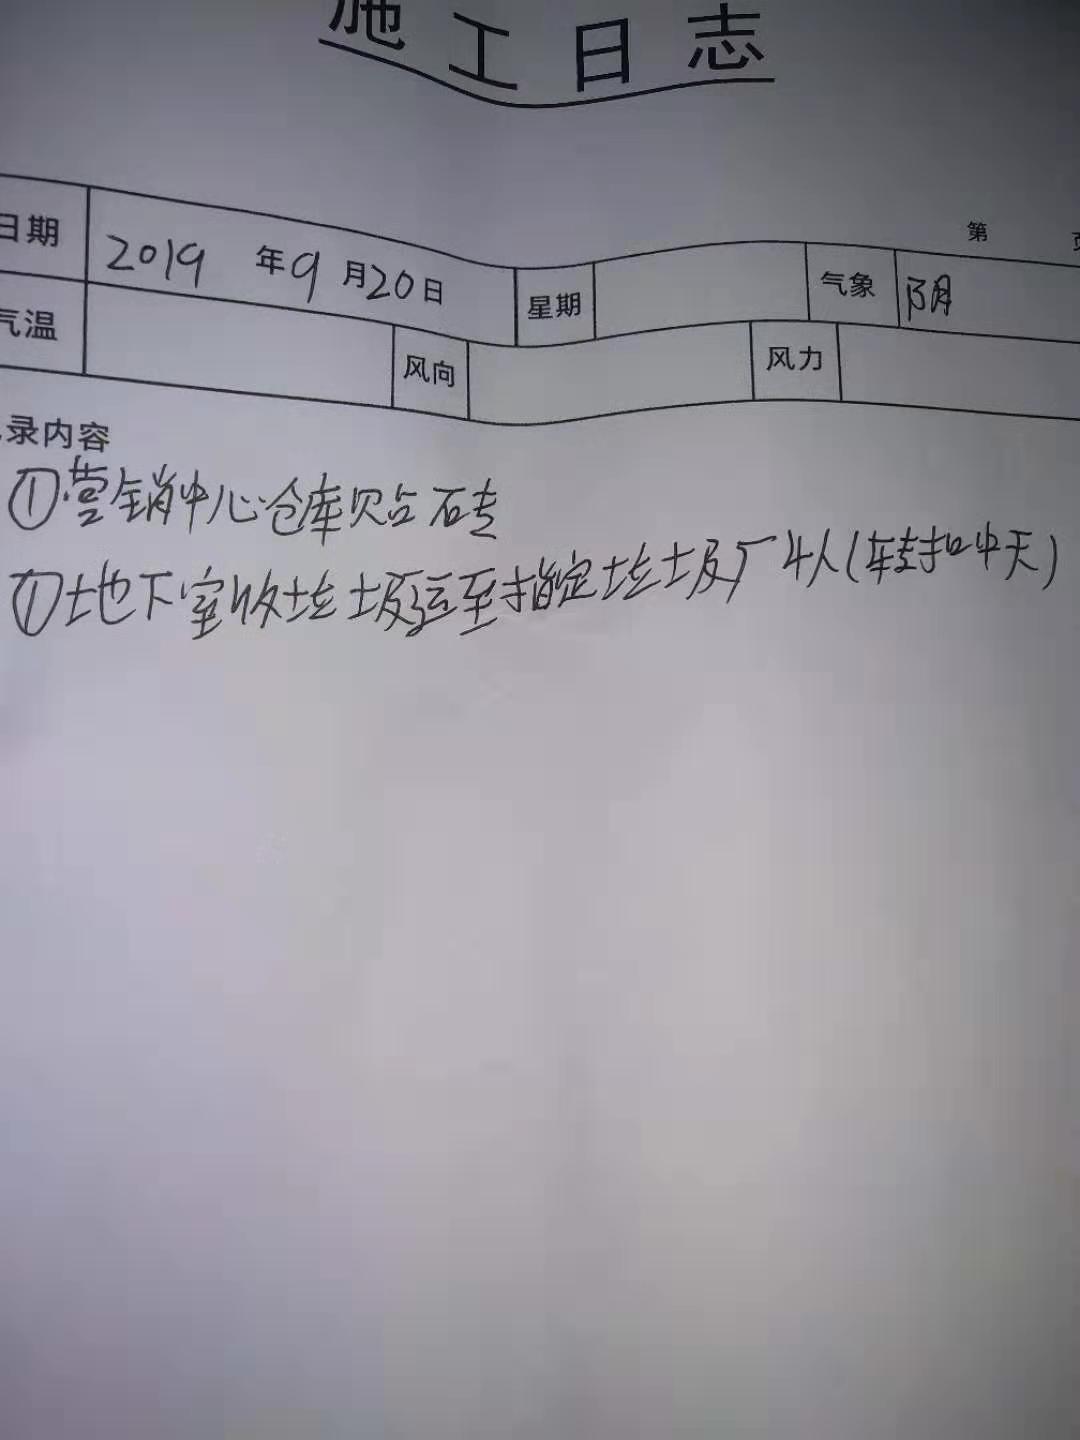 施工日志
第 页
日期 2019 年 9 月 20 日 星期 气象 阴
气温 风向 风力
录内容
①营销中心仓库贴砖
①地下室收垃圾运至指定垃圾厂4人(转扣中天)